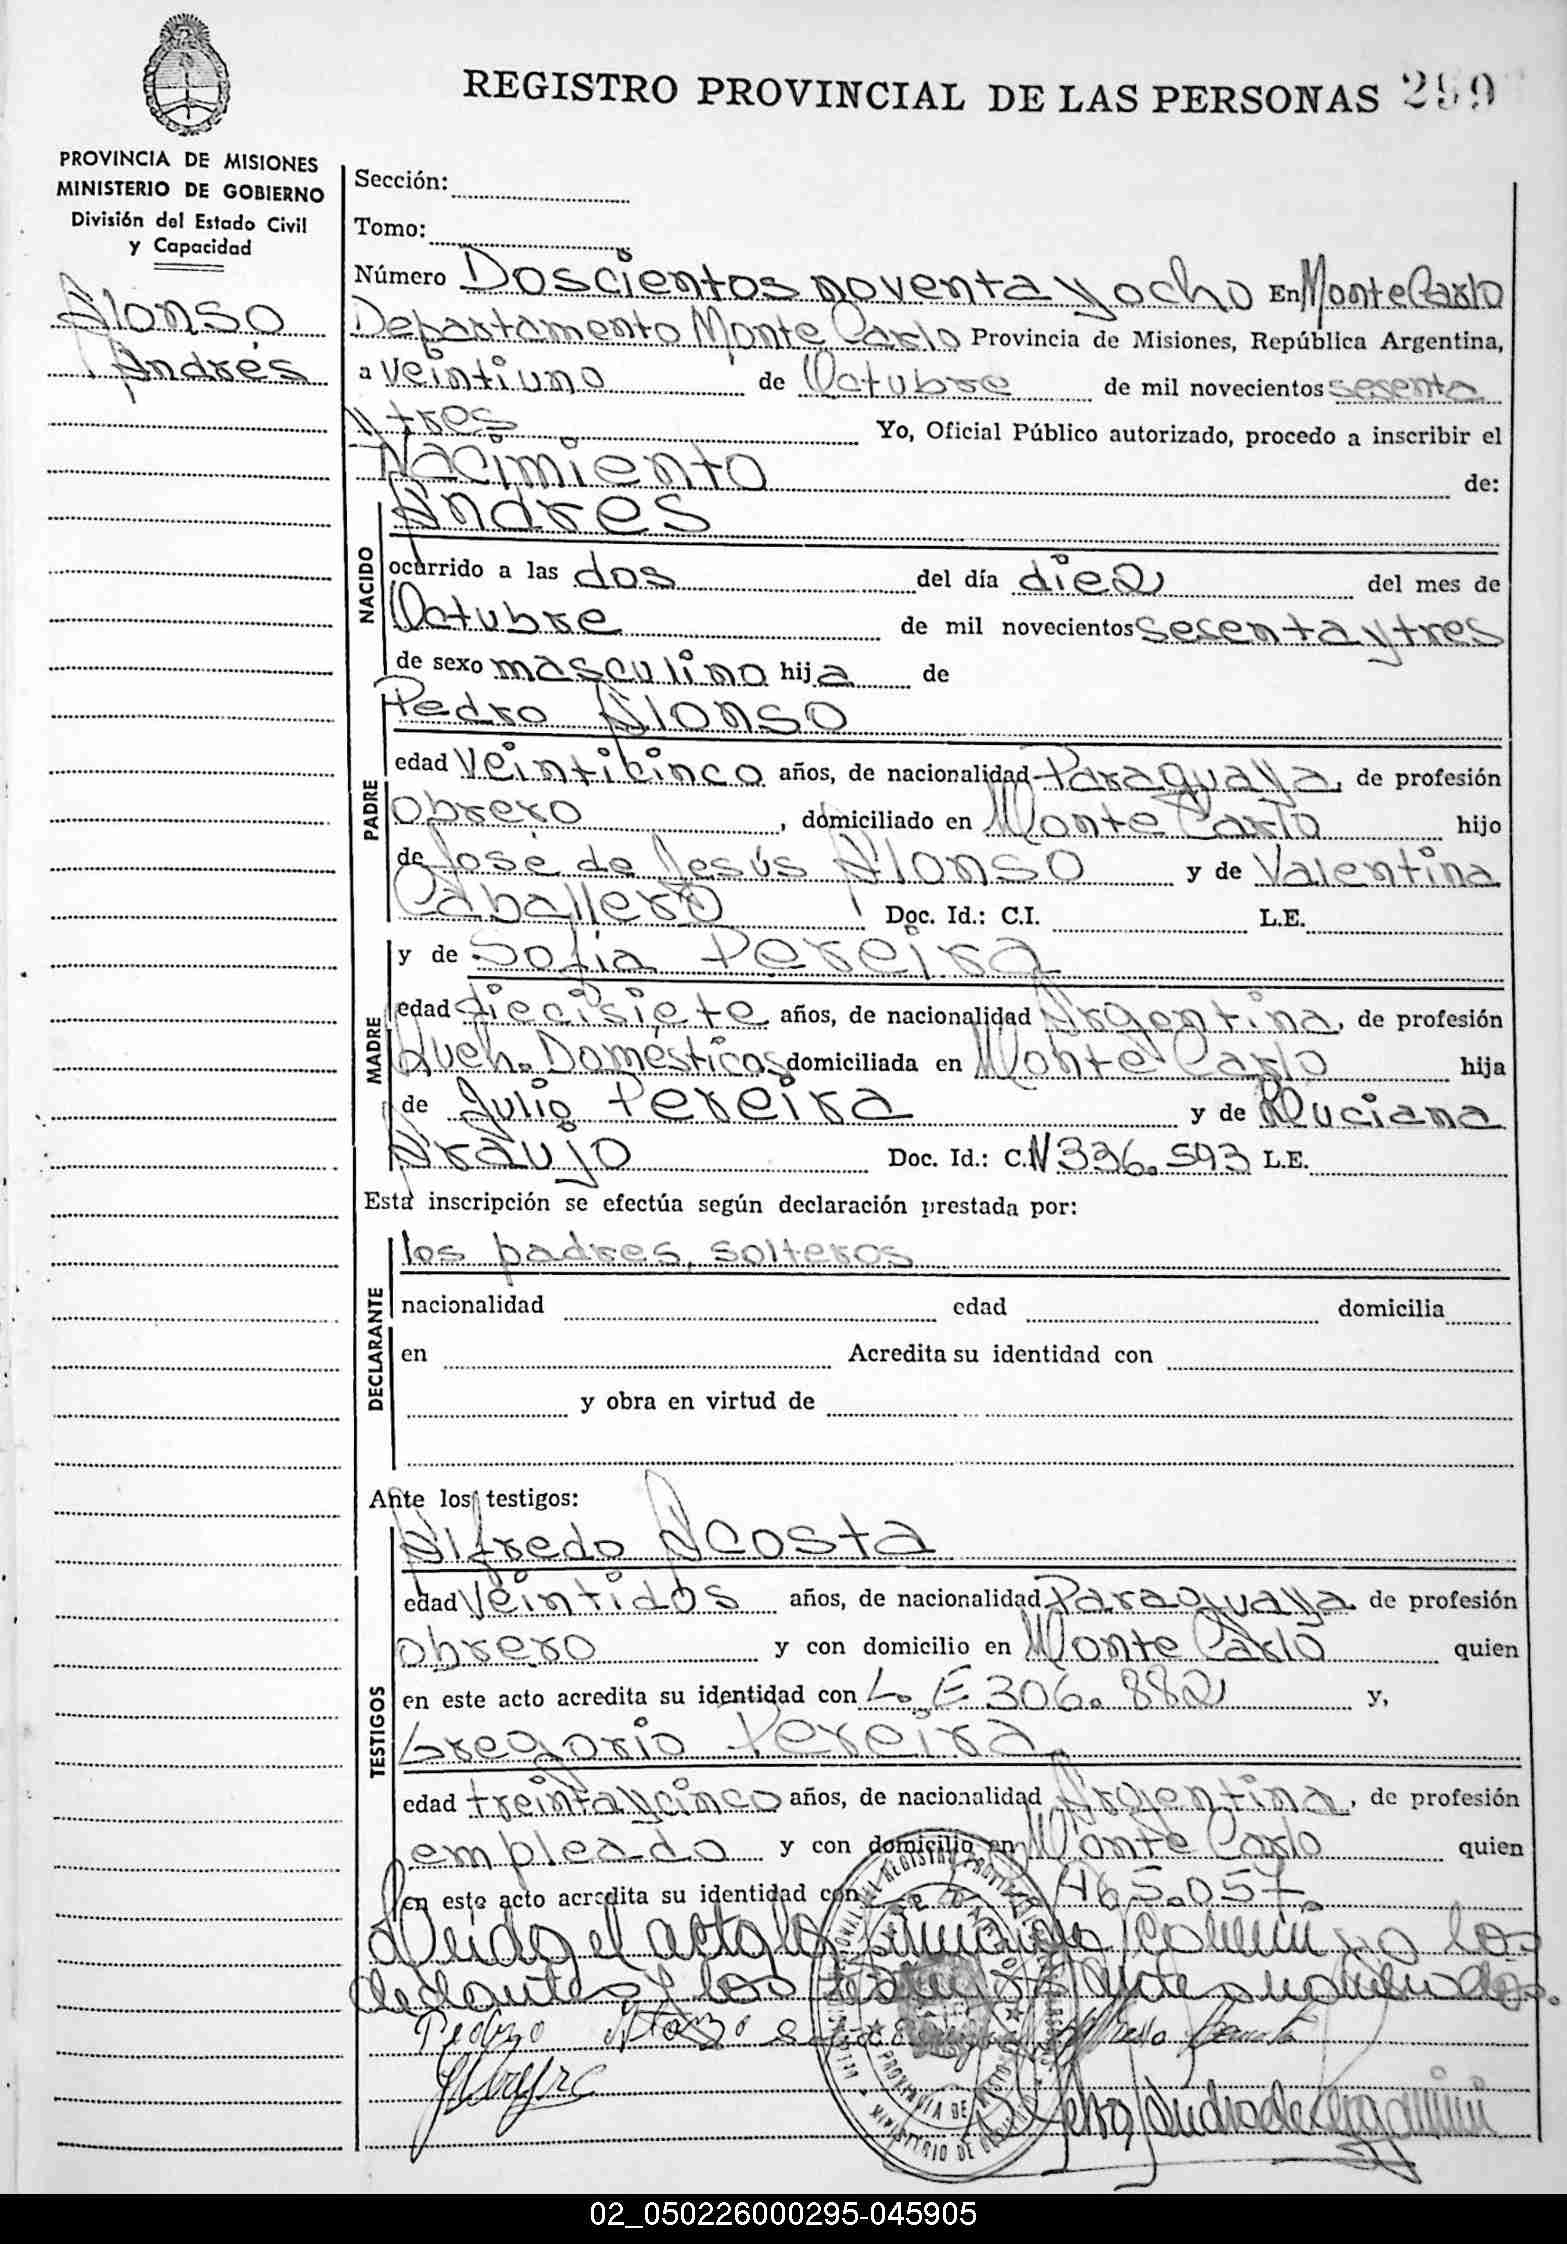 REGISTRO PROVINCIAL DE LAS PERSONAS 299
PROVINCIA DE MISIONES
MINISTERIO DE GOBIERNO
División del Estado Civil
y Capacidad
Alonso
Andrés
Sección:
Tomo:
Número Doscientos noventa y ocho En Monte Carlo
Departamento Monte Carlo Provincia de Misiones, República Argentina,
a veintiuno de Octubre de mil novecientos sesenta
y tres Yo, Oficial Público autorizado, procedo a inscribir el
Nacimiento de:
NACIDO
Andres
ocurrido a las dos del día diez del mes de
Octubre de mil novecientos sesenta y tres
de sexo masculino hija de
PADRE
Pedro Alonso
edad veinticinco años, de nacionalidad Paraguaya, de profesión
obrero, domiciliado en Monte Carlo hijo
de José de Jesús Alonso y de Valentina
Caballero Doc. Id.: C.I. L.E.
MADRE
y de Sofia Pereira
edad diecisiete años, de nacionalidad Argentina, de profesión
Queh. Domésticos domiciliada en Monte Carlo hija
de Julio Pereira y de Luciana
Araujo Doc. Id.: C. N 336.593 L.E.
Esta inscripción se efectúa según declaración prestada por:
DECLARANTE
los padres, solteros
nacionalidad edad domicilia
en Acredita su identidad con
y obra en virtud de
Ante los testigos:
TESTIGOS
Alfredo Acosta
edad veintidos años, de nacionalidad Paraguaya de profesión
obrero y con domicilio en Monte Carlo quien
en este acto acredita su identidad con L. E 306.882 y,
Gregorio Pereira
edad treinta y cinco años, de nacionalidad Argentina, de profesión
empleado y con domicilio en Monte Carlo quien
en este acto acredita su identidad con 465.057.
Leido el acta la firman conmigo los
declarantes y los testigos antes nombrados.
Pedro Alonzo
02_050226000295-045905